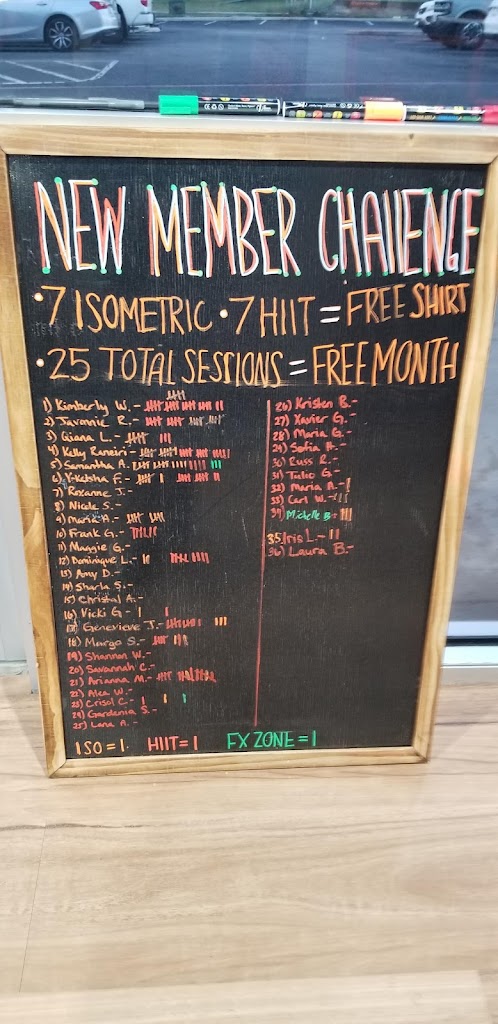 NEW MEMBER CHAllENGE
• 7 ISOMETRIC • 7 HIIT = FREE SHIRT
• 25 TOTAL SESSIONS = FREE MONTH
1) Kimberly W. -
2) Javonnie R. -
3) Qiana L. -
4) Kelly Raneiri -
5) Samantha A. -
6) Y-Kelsha F. -
7) Roxanne J. -
8) Nicole S. -
9) Marie A. -
10) Frank G. -
11) Maggie G. -
12) Dominique L. -
13) Amy D. -
14) Sharla S. -
15) Christal A. -
16) Vicki G -
17) Genevieve J. -
18) Margo S. -
19) Shannon W. -
20) Savannah C. -
21) Arianna M. -
22) Alea W. -
23) Crisol C. -
24) Gardenia S. -
25) Lana A. -
26) Kristen B. -
27) Xavier G. -
28) Maria G. -
29) Sofia H. -
30) Russ R. -
31) Tulio G. -
32) Maria A. -
33) Carl W. -
34) Michelle B -
35) Iris L. -
36) Laura B -
ISO = 1. HIIT = 1 FX ZONE = 1